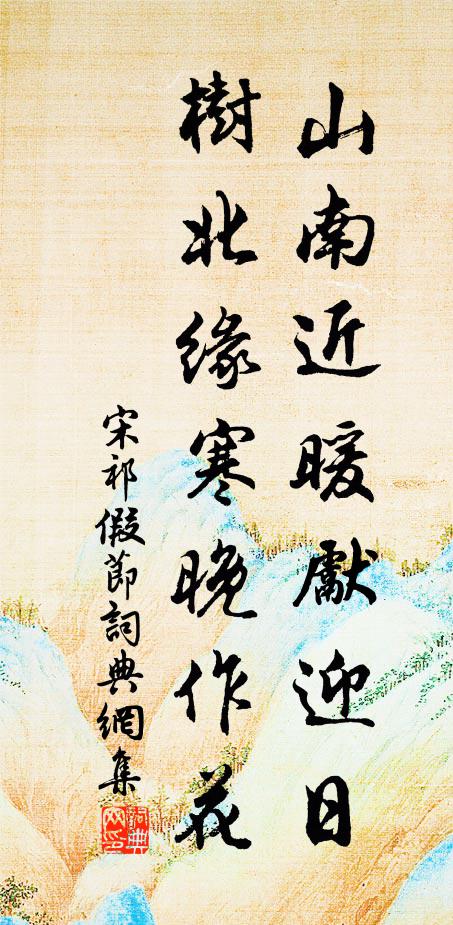 山南近暖獻迎日
樹北緣寒晚作花
宋祁假節詞典網集
詞典
网印